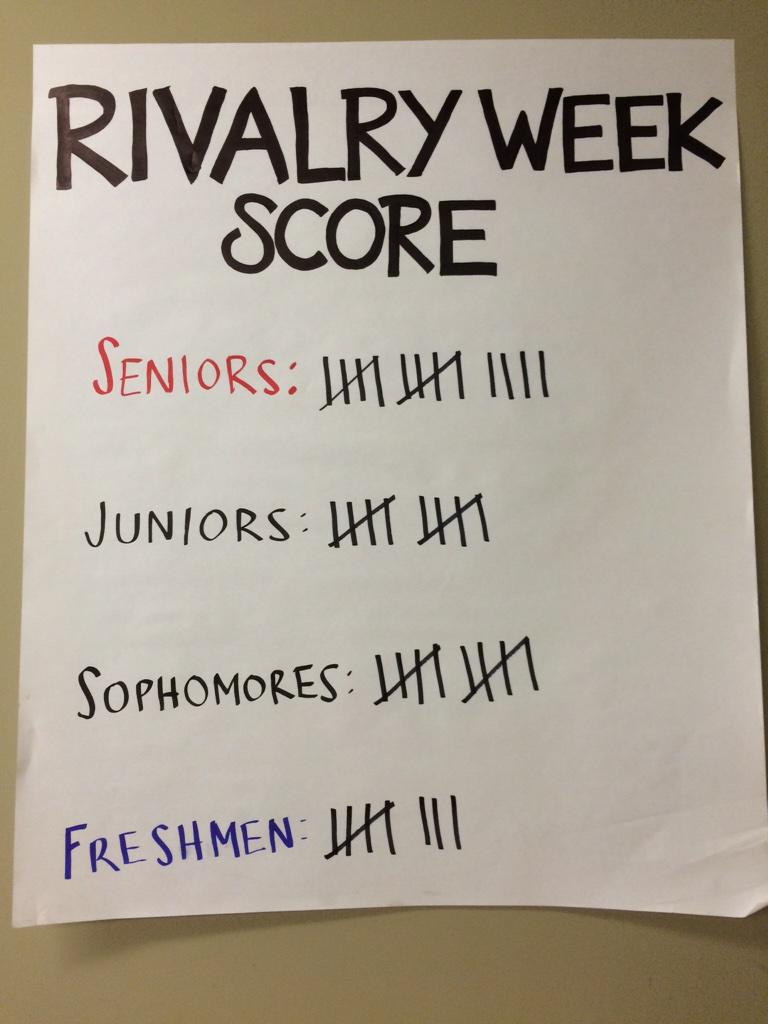 RIVALRY WEEK
SCORE
SENIORS: 卌 卌 ||||
JUNIORS: 卌 卌
SOPHOMORES: 卌 卌
FRESHMEN: 卌 |||